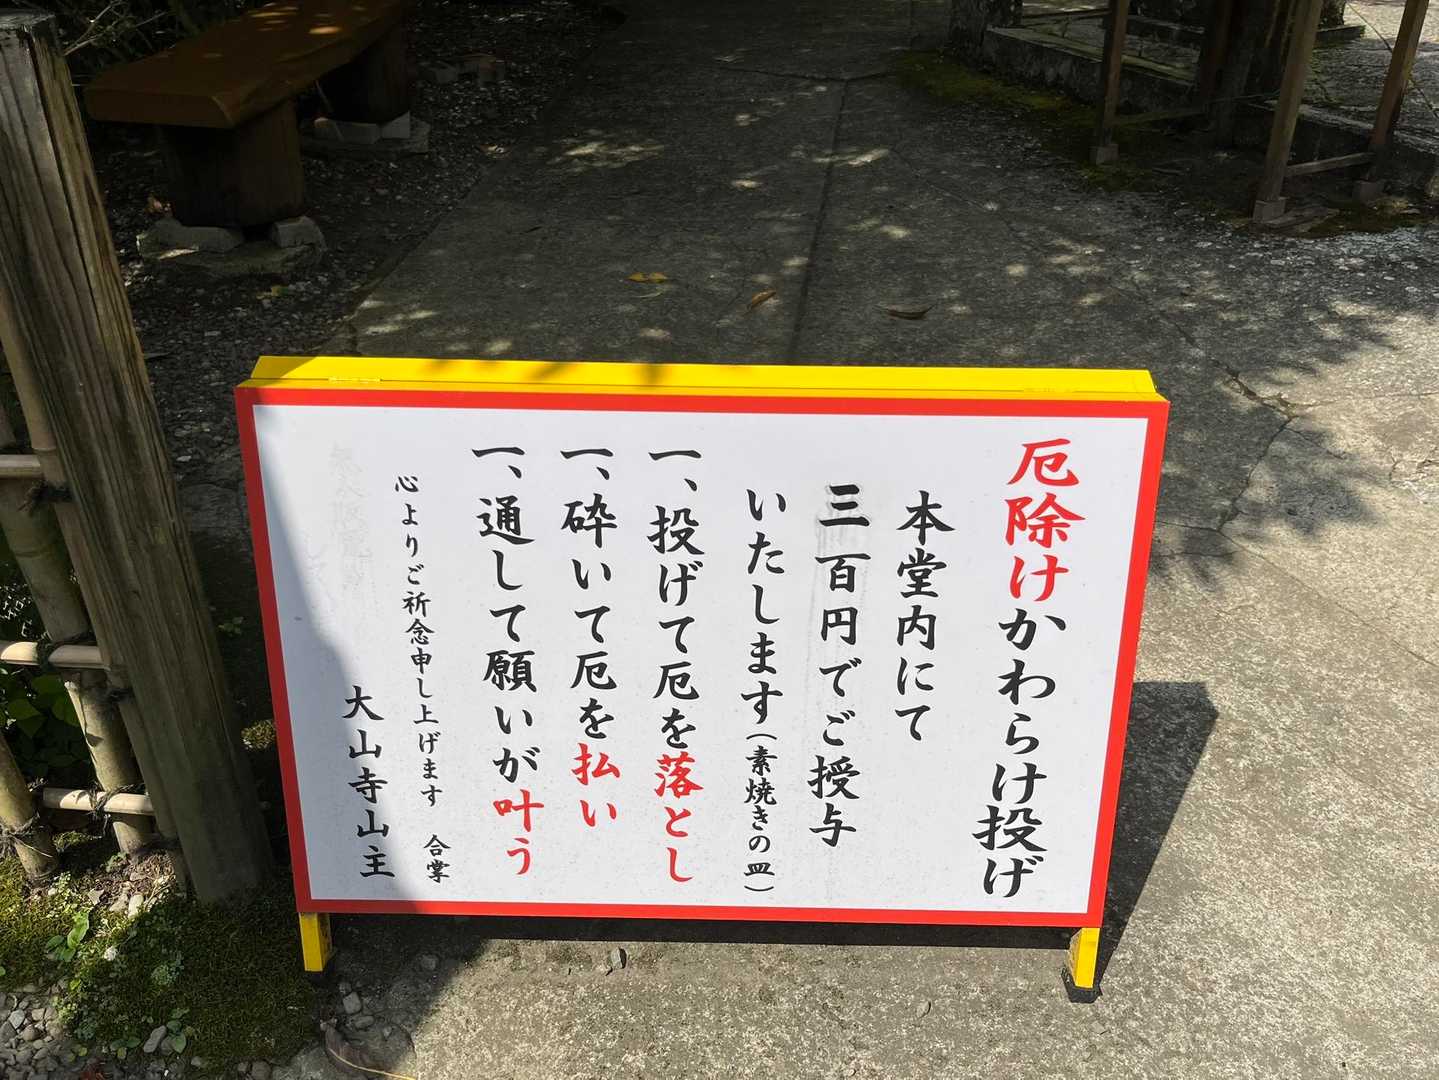 厄除けかわらけ投げ
本堂内にて
三百円でご授与
いたします（素焼きの皿）
一、投げて厄を落とし
一、砕いて厄を払い
一、通して願いが叶う
心よりご祈念申し上げます　合掌
大山寺山主